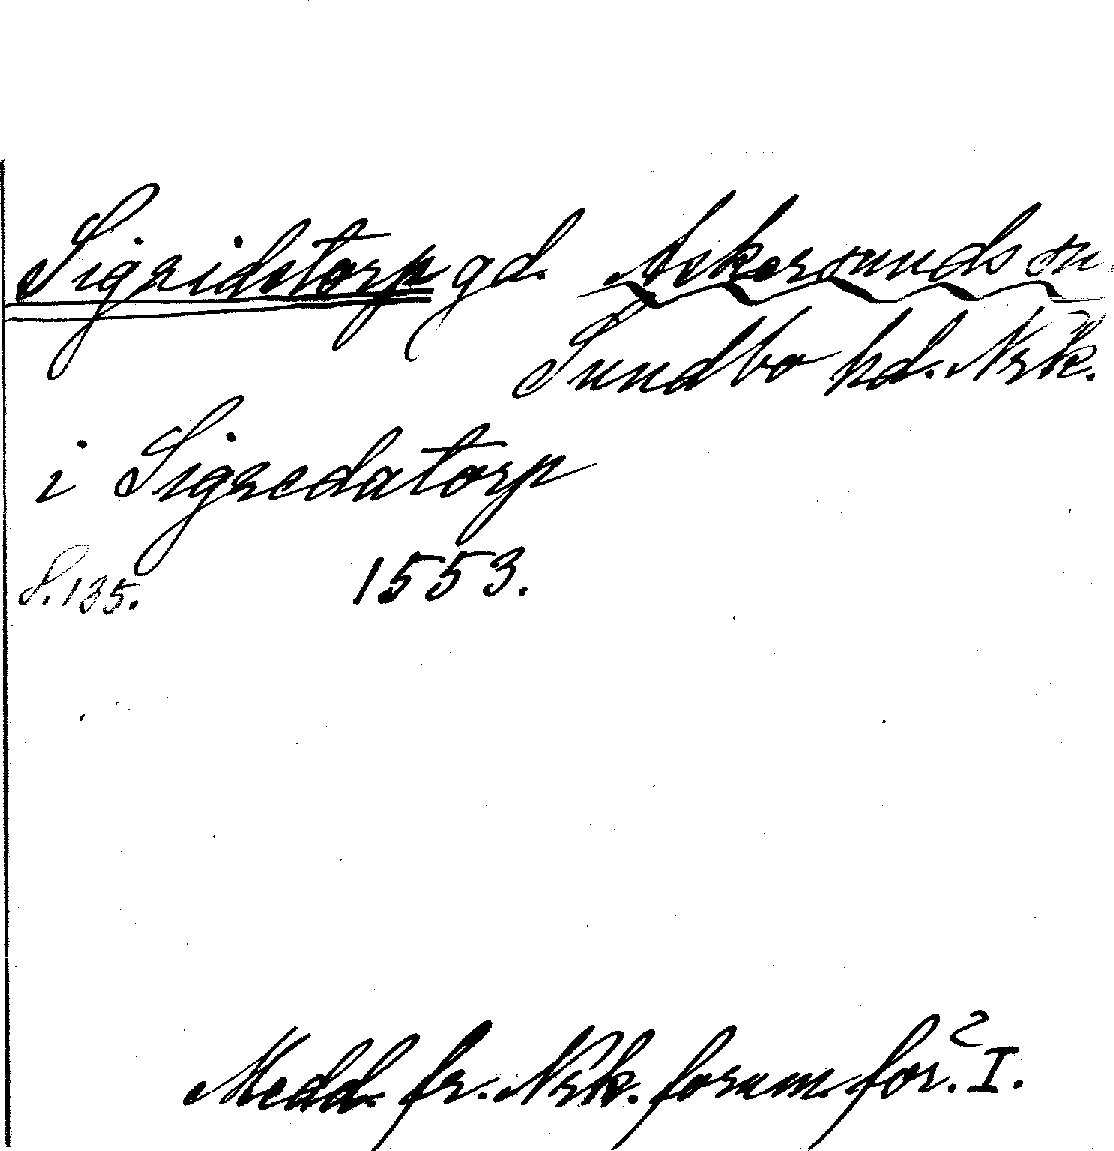 Sigridstorp gd. Askersunds sn.
Sundbo hd. Nrk.
i Sigredatorp
S. 135. 1553.
Medd. fr. Nrk. fornm. för. I.